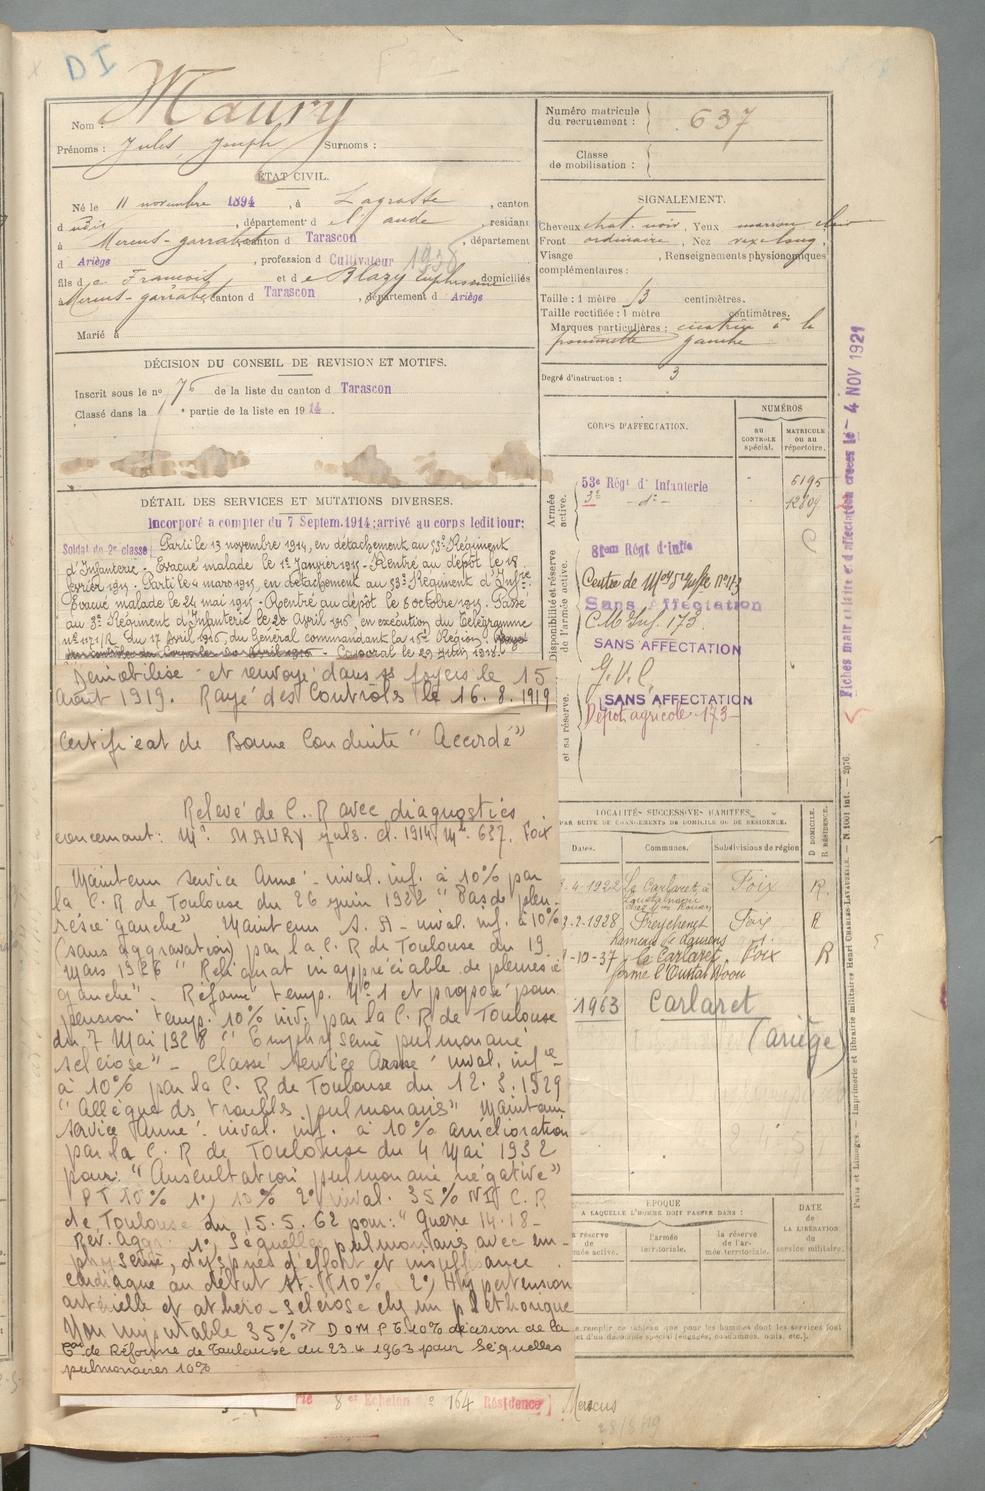 DI
Nom : Maury
Prénoms : Jules Joseph Surnoms :
ÉTAT CIVIL.
Né le 11 novembre 1894, à Lagrasse, canton
d udit, département d e l'aude, résidant
à Mercus-garrabet, canton d Tarascon, département
d Ariège, profession d Cultivateur 1938
fils d e François et d e Blazy Euphrasie domiciliés
à Mercus-garrabet canton d Tarascon, département d Ariège
Marié à
DÉCISION DU CONSEIL DE REVISION ET MOTIFS.
Inscrit sous le nº 76 de la liste du canton d Tarascon
Classé dans la 1 e partie de la liste en 1914.
DÉTAIL DES SERVICES ET MUTATIONS DIVERSES.
Incorporé à compter du 7 Septem.1914; arrivé au corps ledit jour:
Soldat de 2e classe Parti le 13 novembre 1914, en détachement au 53e Régiment
d'Infanterie - Evacué malade le 1er Janvier 1915 - Rentré au dépôt le 18
février 1915 - Parti le 4 mars 1915, en détachement au 53e Régiment d'Infrie
Evacué malade le 24 mai 1915 - Rentré au dépôt le 8 octobre 1915. Passé
au 3e Régiment d'Infanterie le 20 Avril 1916, en exécution du télégramme
nº 1171/R. du 17 Avril 1916, du Général commandant la 15e Région. Rayé
des contrôles du Corps le 20 Avril 1916 - Caporal le 29 Juin 1918.
Démobilisé et renvoyé dans ses foyers le 15
Août 1919. Rayé des Contrôles le 16.8.1919
Certificat de Bonne Conduite "Accordé"
Relevé de C.R avec diagnostics
concernant: Mr. MAURY Juls. cl. 1914 Mle 637. Foix
Maintenu Service Armé - inval. inf. à 10% par
la C.R de Toulouse du 26 juin 1922 "Pas de pleu-
résie gauche" Maintenu S.A - inval. inf. à 10%
(sans aggravation) par la C.R de Toulouse du 19
Mars 1926 "Reliquat inappréciable de pleurésie
gauche". Réformé temp. Nº 1 et proposé pour
pension temp. 10% inv. par la C.R de Toulouse
du 7 Mai 1928 "Emphysème pulmonaire
sclérose" - Classé Service Armé inval. infre
à 10% par la C.R de Toulouse du 12.3.1929
"Allègue des troubles pulmonaires" Maintenu
Service Armé. inval. inf. à 10% amélioration
par la C.R de Toulouse du 4 Mai 1932
pour: "Auscultation pulmonaire négative"
PT 10% 1º, 10% 2º inval. 35% NI C.R
de Toulouse du 15.5.62 pour: "Guerre 14-18-
Rev. Aggr. 1º, Séquelles pulmonaires avec em-
physème, dyspnés d'effort et insuffisance
cardiaque au début 10% 2º, Hypertension
artérielle et athéro-sclérose chez un pléthorique
Non imputable 35%" DOM PT 10% décision de la
Con de Réforme de Toulouse du 23.4.1963 pour Séquelles
pulmonaires 10%
8 e Echelon 164 Résidence] Mercus
28/8/19
Numéro matricule du recrutement : 637
Classe de mobilisation :
SIGNALEMENT.
Cheveux chat. noir, Yeux marron clair
Front ordinaire, Nez
Visage , Renseignements physiognomiques
complémentaires :
Taille : 1 mètre 53 centimètres.
Taille rectifiée : 1 mètre centimètres.
Marques particulières : cicatrice à la
pommette gauche
Degré d'instruction : 3
CORPS D'AFFECTATION.
NUMÉROS
AU CONTRÔLE spécial.
MATRICULE ou au répertoire.
Armée active.
53e Régt d'Infanterie - 6195
3e - d° - - 12809
Disponibilité et réserve de l'armée active.
81em Régt d'infie
Sans Affectation
C M Inf. 173
SANS AFFECTATION
G.V.C
SANS AFFECTATION
Dépôt agricole 173
et sa réserve.
Fiches matriculaire et d'affectation créées le - 4 NOV 1921
LOCALITÉS SUCCESSIVES HABITÉES
PAR SUITE DE CHANGEMENTS DE DOMICILE OU DE RÉSIDENCE.
Dates. Communes. Subdivisions de région D. DOMICILE R. RÉSIDENCE.
4.1922 Le Carlaret à Foix R.
2.1928 Freychenet Foix R
-10-37 Le Carlaret Foix R
ferme l'Oustal Noou
1963 Carlaret
(Ariège)
ÉPOQUE
À LAQUELLE L'HOMME DOIT PASSER DANS :
la réserve de l'armée active.
l'armée territoriale.
la réserve de l'armée territoriale.
DATE de LA LIBÉRATION du service militaire.
remplir ce tableau que pour les hommes dont les services font
et d'un décompte spécial (engagés, condamnés, omis, etc.).
Paris et Limoges. — Imprimerie et librairie militaires Henri CHARLES-LAVAUZELLE. — N. 1001 int. — 2076.